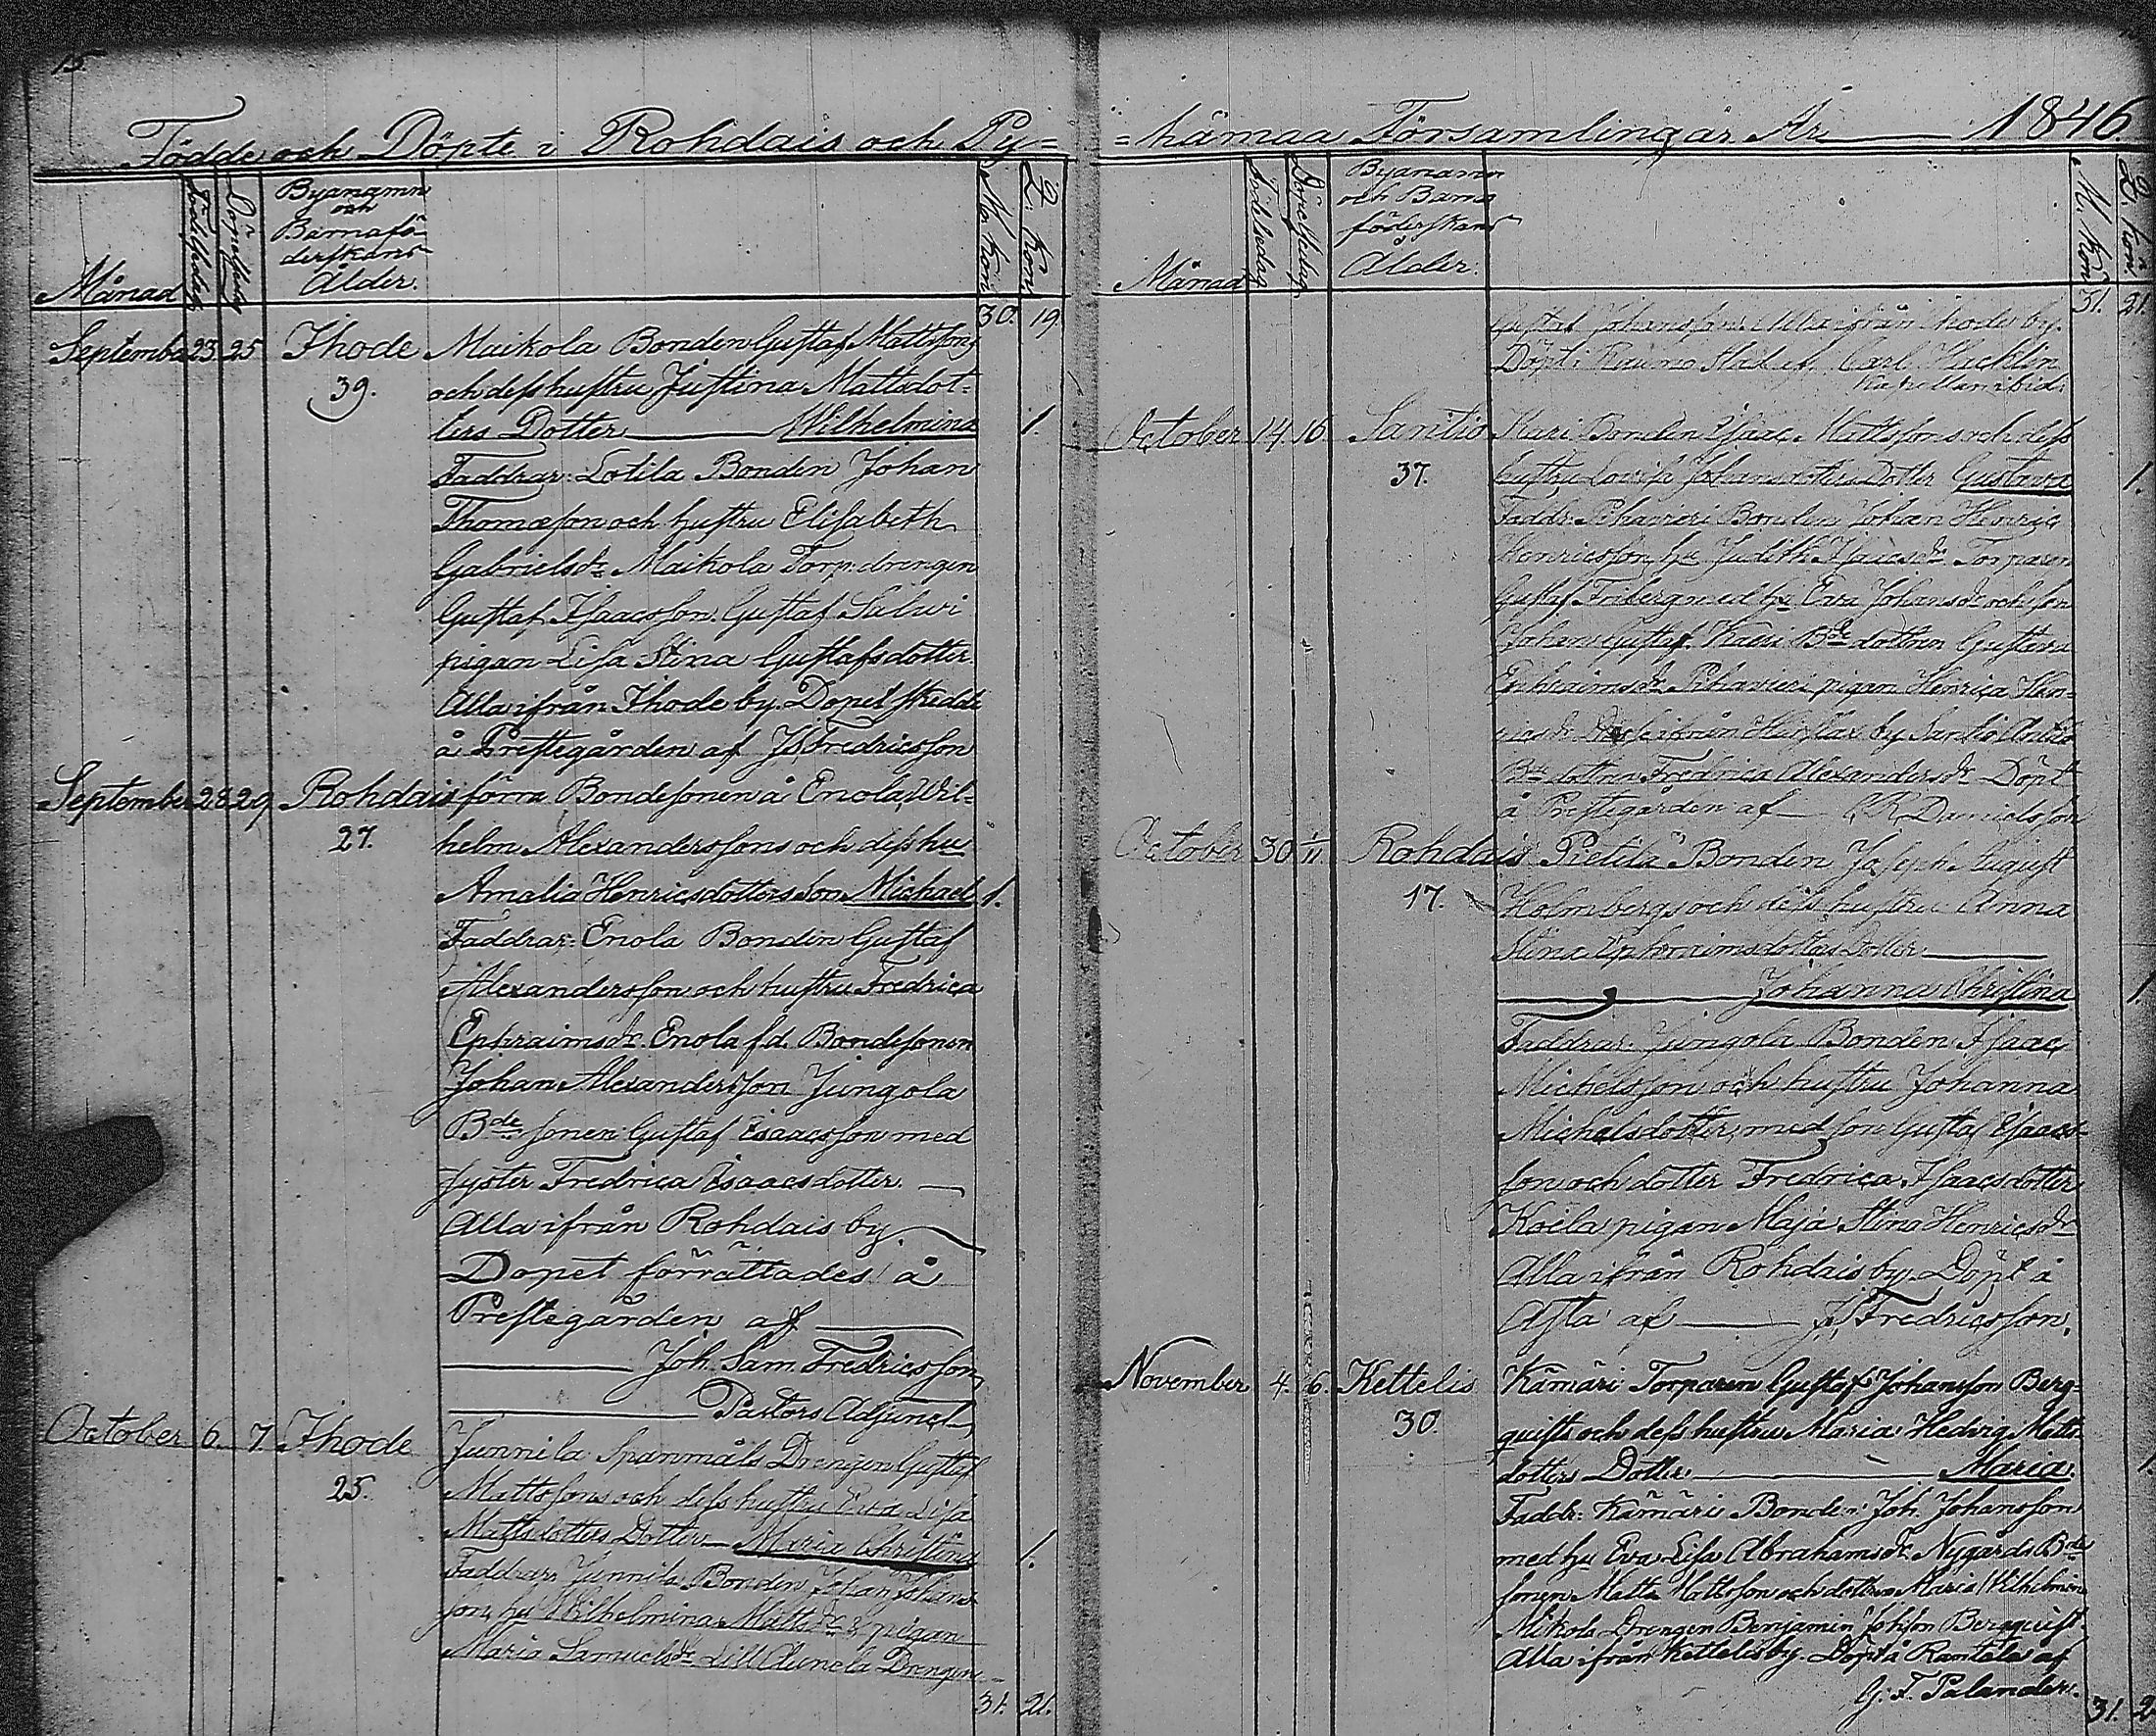 15
Födde och Döpte i Rohdais och Py=
Månad
Födelsedag
Döpelsedag
Byanamn
och
Barnafö-
derskans
Ålder.
M. kön
Q. kön
30. 19.
September 23 25 Ihode Maikola Bonden Gustaf Mattssons
39. och dess hustru Justina Mattsdot-
ters Dotter Wilhelmina 1.
Faddrar: Lotila Bonden Johan
Thomæson och hustru Elisabeth
Gabrielsdr Maikola Torp. drengen
Gustaf Isaacsson. Gustaf Salwi
pigan Lisa Stina Gustafsdotter.
Alla ifrån Ihode by. Dopet skedde
å Prestegården af JS Fredricsson
September 28 29 Rohdais förra Bondesonen å Enola, Wil-
27. helm Alexanderssons och dess hu
Amalia Henricsdotters Son Michael 1.
Faddrar: Enola Bonden Gustaf
Alexandersson och hustru Fredrica
Ephraimsdr. Enola f.d. Bondesonen
Johan Alexandersson Jungola
Bde sonen Gustaf Isaacsson med
syster Fredrica Isaacsdotter.
Alla ifrån Rohdais by
Dopet förrättades å
Prestegården af
Joh. Sam. Fredricsson,
Pastors Adjunct,
October 6. 7 Ihode Junnila Spanmåls Drengen Gustaf
25. Mattssons och dess hustru Eva Lisa
Mattsdotters Dotter Maria Christina 1.
Faddrar: Junnila Bonden Johan Johans-
son, hu Wilhelmina Mattsdr & pigan
Maria Samuelsdr Lill Drengen
31. 21.
=hämaa Församlingar År 1846.
Månad
Födelsedag
Döpelsedag
Byanamn
och Barna
föderskans
Ålder.
M. kön
Q. kön
31. 21
Gustaf Johansson. Alla ifrån Ihode by.
Döpt i Raumo Stad af Carl Hacklin
Kapellan ibid.
October 14. 16 Santio Kari Bonden Isaac Mattssons och dess
37. hustru Lovisa Johansdotters Dotter Gustava 1.
Faddr: Pihavieri Bonden Johan Henric
Henricsson, hu Judith Isaacsdr Torparen
Gustaf Friberg med hu Eva Johansdr och son
Johan Gustaf. Bde dottren Gustava
Ephraimsdr Pihavieri pigan Henrica Hen-
ricsdr ifrån by Santio
Bde dottren Fredrica Alexandersdr Döpt
å Prestegården af CR Danielsson
October 30 1/11 Rohdais Pietilä Bonden Joseph August
17. Holmbergs och dess hustru Anna
Stina Ephraimsdotters Dotter
Johanna Christina 1
Faddrar: Jungola Bonden Isaac
Michelsson och hustru Johanna
Michelsdotter, med son Gustaf Isaacs-
son och dotter Fredrica Isaacsdotter
Koela pigan Maja Stina Henricsdr
Alla ifrån Rohdais by. Döpt å
Asta af JS Fredricsson.
November 4. 6. Kettelis Kämäri Torparen Gustaf Johansson Berg-
30. quists och dess hustru Maria Hedvig Matts
dotters Dotter Maria. 1
Faddr: Kämäris Bonden Joh. Johansson
med hu Eva Lisa Abrahamsdr. Nygårds Bde
sonen Matts Mattsson och dottren Maria Wilhelmina
Mikola Drengen Benjamin Johsson Bergquist
Alla ifrån Kettelis by. Döpt å Rantala af
G. F. Palander.
31. 2